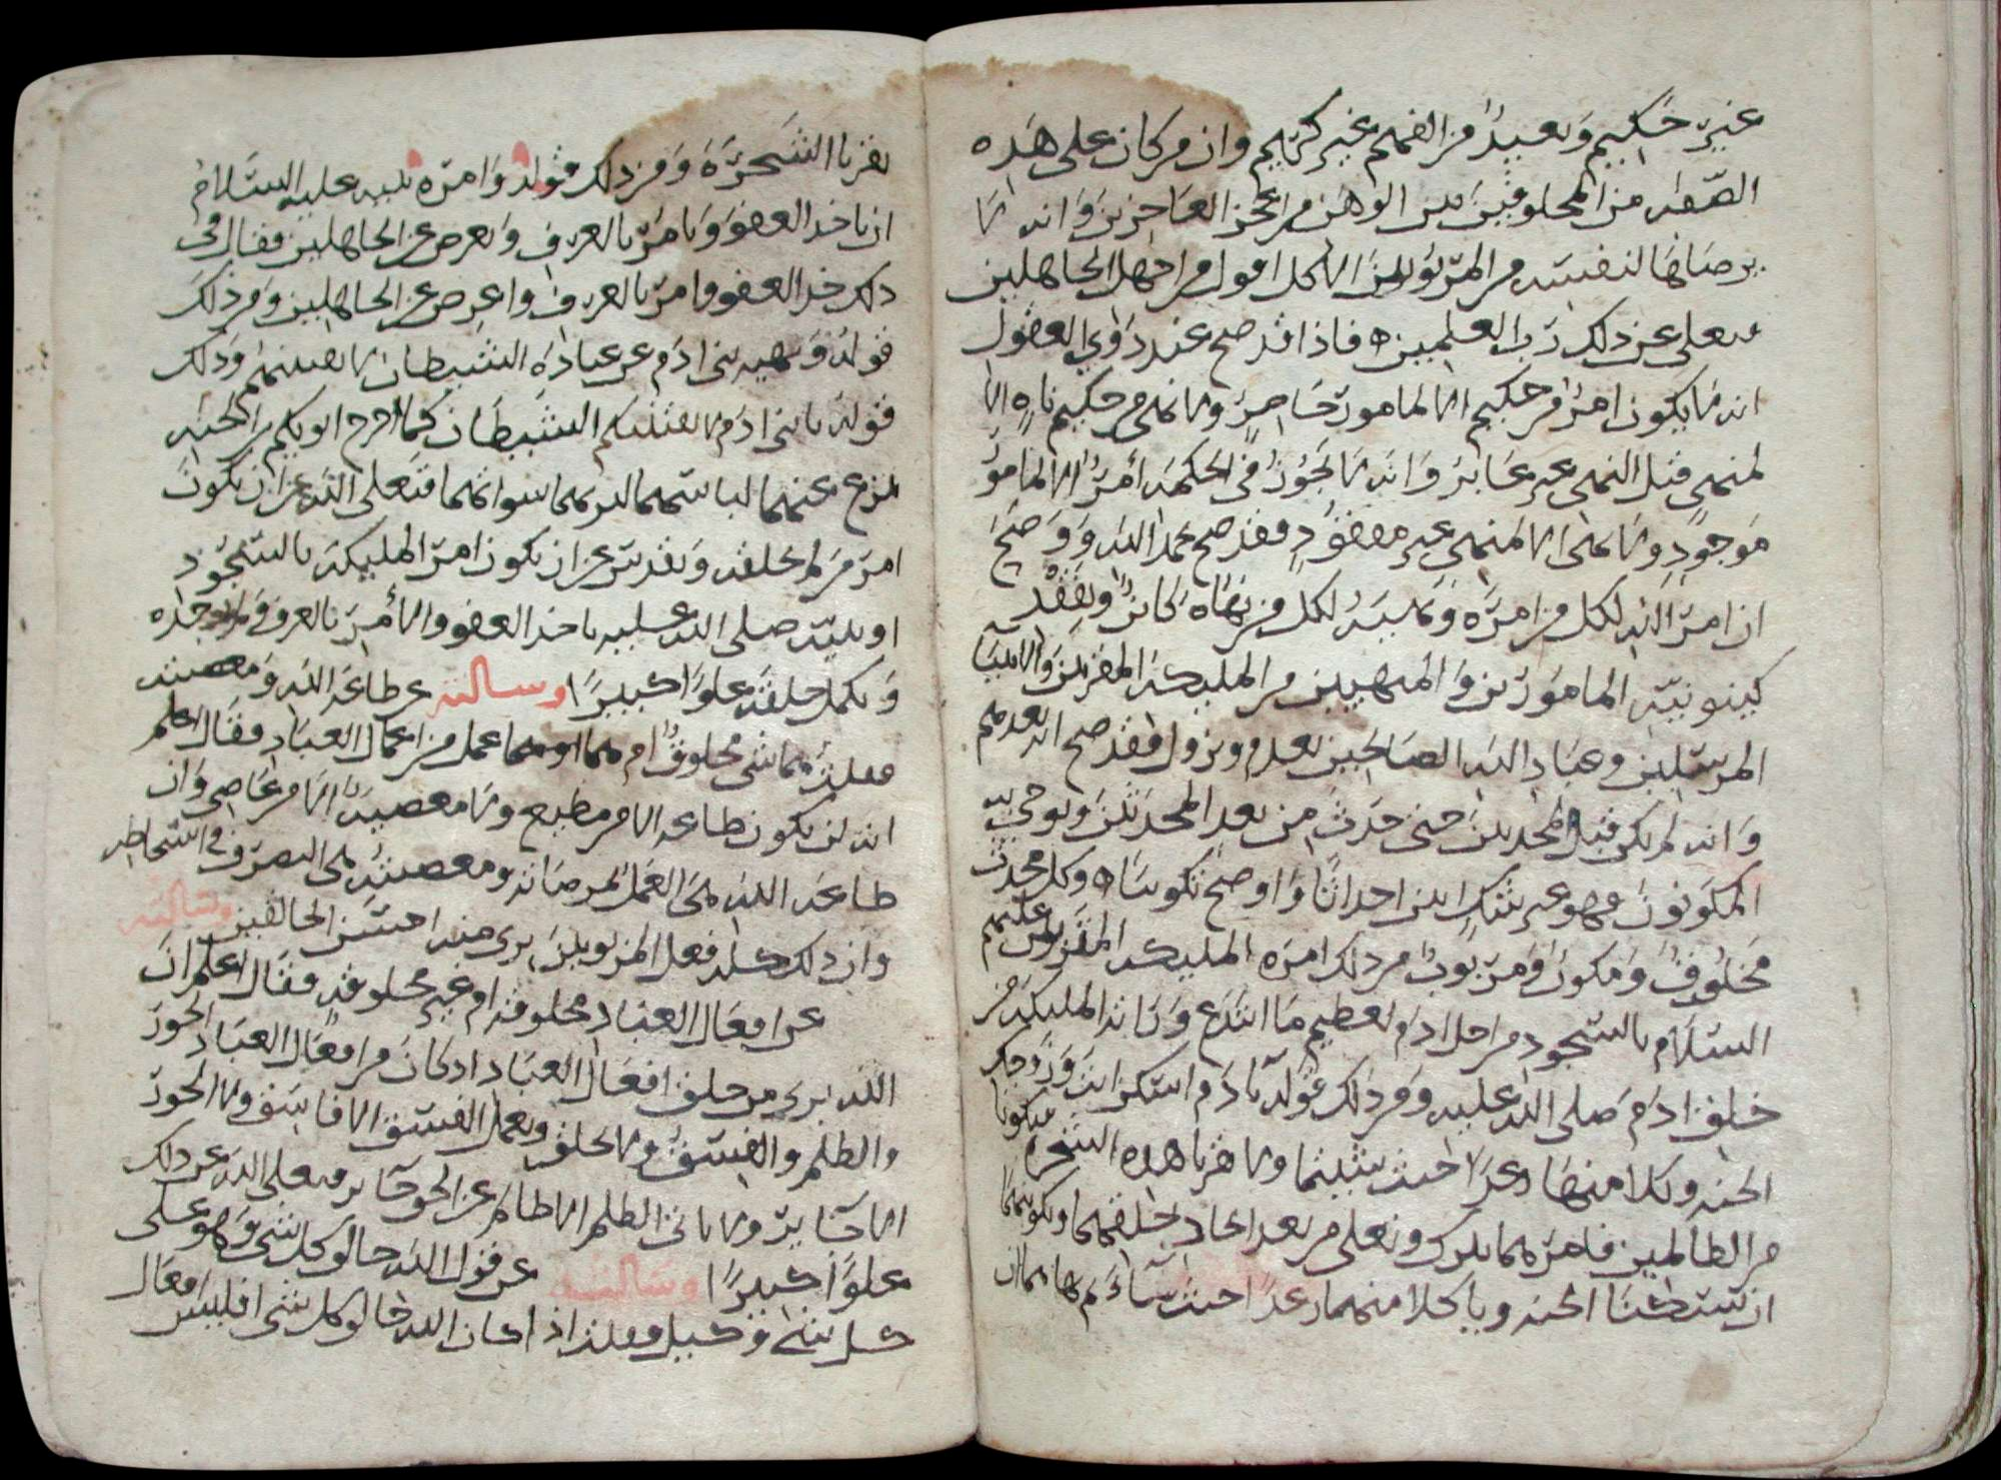 غير حكيم وبعيد من الفهم غير كريم وان من كان على هذه
الصفه من المخلوقين لبين الوهن من اعجز العاجزين وانه لا
يرضاها لنفسه من المربوبين الا كل افول من اجهل الجاهلين
فتعلى عن ذلك رب العلمين ه فاذا قد صح عند ذوي العقول
انه لا يكون امر من حكيم الا لمامور حاضر ولا نهي من حكيم ناه الا
لمنهي قبل النهي غير غابر وانه لا يجوز في الحكمه أمر الا لمامور
موجود ولا نهي الا لمنهي غير مفقود فقد صح بحمد الله ووضح
ان امر الله لكل من امره ونهيه لكل من نهاه كائن وبفقد
كينونيه المامورين والمنهيين من المليكه المقربين والانبيا
المرسلين وعباد الله الصالحين يعدم ويزول فقد صح انه بعدهم
وانه لم يكن قبل المحدثين حتى حدث من بعد المحدثين ونوجي به
المكونون فهو غير شك ابين احداثا واوضح تكوينا ه وكل محدث
مخلوق ومكون ومربوب من ذلك امره المليكه المقربين عليهم
السلام بالسجود من اجل ادم لعظيم ما ابتدع واباته المليكه من
خلق ادم صلى الله عليه ومن ذلك قوله يادم اسكن انت وزوجك
الجنه وكلا منها رغدا حيث شيتما ولا تقربا هذه الشجره فتكونا
من الظالمين فامرهما تبارك وتعلى من بعد ايجاد خلقهما وتكوينهما
ان يسكنا الجنه وياكلا منهما رغدا حيث شاءا ثم نهاهما ان
يقربا الشجره ومن ذلك قوله وامره لنبيه عليه السلام
ان ياخذ العفو ويامر بالعرف ويعرض عن الجاهلين فقال في
ذلك خذ العفو وامر بالعرف واعرض عن الجاهلين ومن ذلك
قوله ونهيه بني ادم عن عباده الشيطان لا يفتننهم وذلك
قوله يا بني ادم لا يفتننكم الشيطان كما اخرج ابويكم من الجنه
ينزع عنهما لباسهما ليريهما سواتهما فتعلى الله عن ان يكون
امر من لم يخلقه وتقدس عن ان يكون امر المليكه بالسجود
او نبيه صلى الله عليه باخذ العفو والأمر بالعرف
ويكمل خلقه علوا كبيرا وسالته عن طاعه الله ومعصيته
فقلت هما شي مخلوق ام هما عمل من اعمال العباد فقال اعلم
انه لن يكون طاعه الا من مطيع ولا معصيه الا من عاصي وان
طاعه الله هي العمل لمرضاته ومعصيته هي التصرف في اسخاطه
وان ذلك كله فعل المربوبين بري منه احسن الخالقين وسالته
عن افعال العباد مخلوقه ام غير مخلوقه فقال اعلم ان
الله بري من خلق افعال العباد اذ كان من افعال العباد الجور
والظلم والفسق ولا يخلق ويعمل الفسق الا فاسق ولا الجور
الا جاير ولا ياتي الظلم الا ظالم عن الحق جاير فتعلى الله عن ذلك
علوا كبيرا وسالته عن قول الله خالق كل شي وهو على
كل شي وكيل فقلت اذا كان الله خالق كل شي افليس افعال